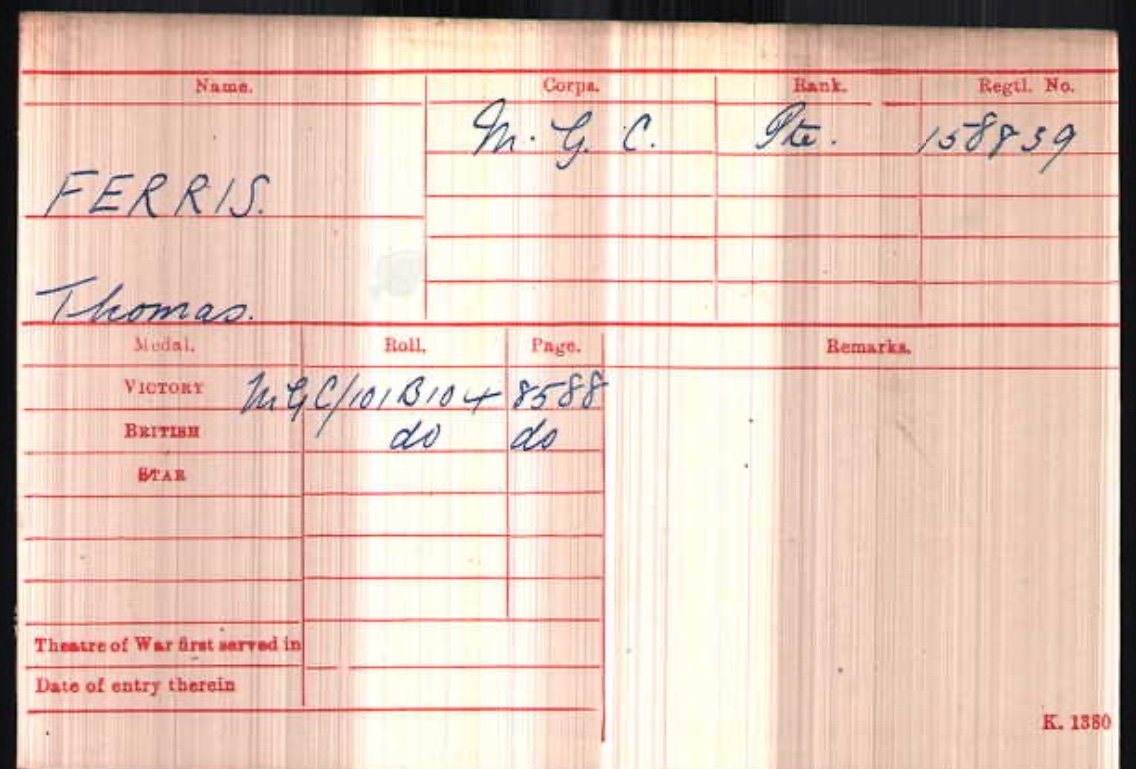 Name. Corps. Rank. Regtl. No.
M. G. C. Pte. 158839
FERRIS.
Thomas.
Medal. Roll. Page. Remarks.
VICTORY MGC/101B104 8588
BRITISH do do
STAR
Theatre of War first served in
Date of entry therein
K. 1380